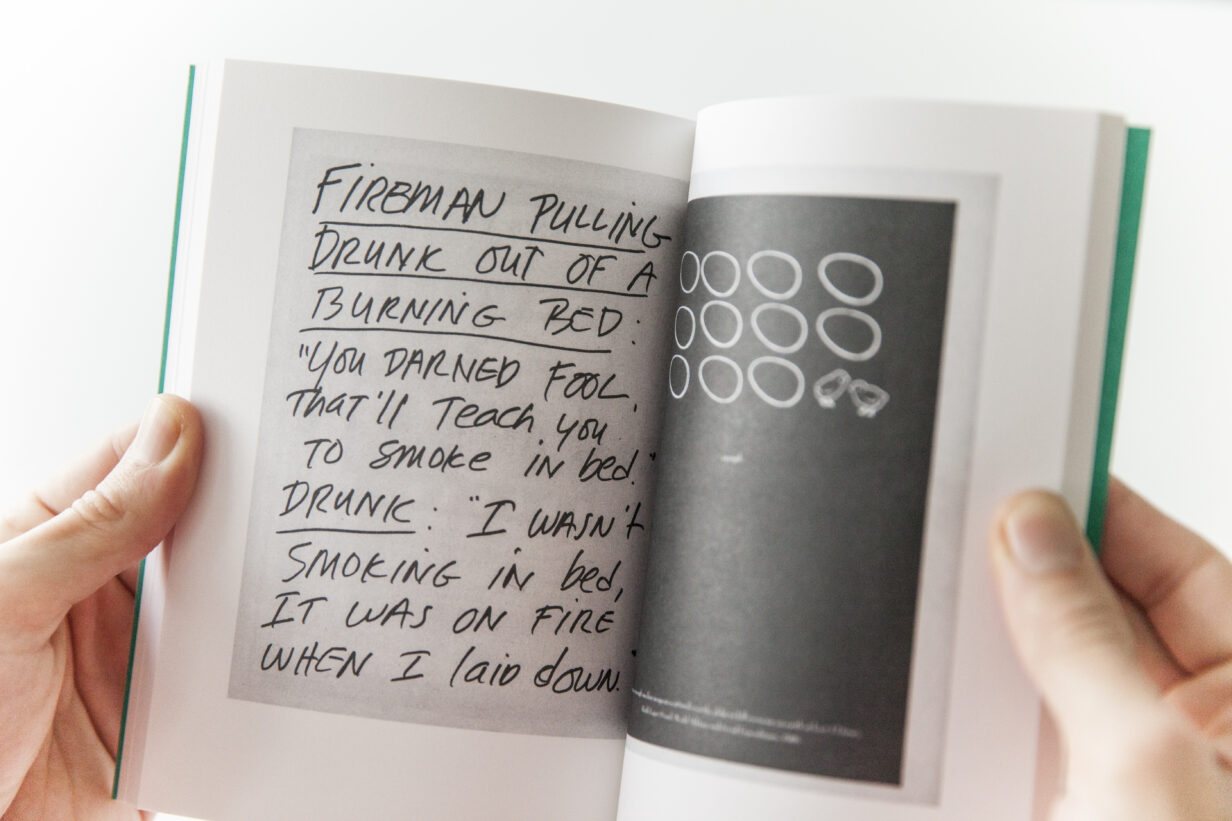 FIREMAN PULLING
DRUNK OUT OF A
BURNING BED:
"YOU DARNED FOOL.
That'll Teach you
TO SMOKE IN bed."
DRUNK: "I WASN't
SMOKING IN bed,
IT WAS ON FIRE
WHEN I laid down."